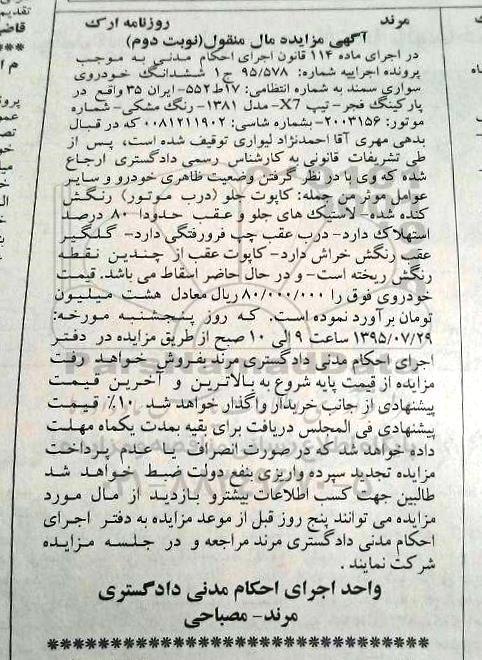 مرند
روزنامه ارک
آگهی مزایده مال منقول(نوبت دوم)
در اجرای ماده ۱۱۴ قانون اجرای احکام مدنی به موجب
پرونده اجراییه شماره: ۹۵/۵۷۸ ج۱ ششدانگ خودروی
سواری سمند به شماره انتظامی: ۱۷ط۵۵۲-ایران ۳۵ واقع در
پارکینگ فجر- تیپ X7- مدل ۱۳۸۱- رنگ مشکی- شماره
موتور: ۲۰۰۳۱۵۶- بشماره شاسی: ۰۰۸۱۲۱۱۹۰۲ که در قبال
بدهی مهری آقا احمدنژاد لیواری توقیف شده است، پس از
طی تشریفات قانونی به کارشناس رسمی دادگستری ارجاع
شده که وی با در نظر گرفتن وضعیت ظاهری خودرو و سایر
عوامل موثر من جمله: کاپوت جلو (درب موتور) رنگش
کنده شده- لاستیک های جلو و عقب حدودا ۸۰ درصد
استهلاک دارد- درب عقب چپ فرورفتگی دارد- گلگیر
عقب رنگش خراش دارد- کاپوت عقب از چندین نقطه
رنگش ریخته است- و در حال حاضر اسقاط می باشد. قیمت
خودروی فوق را ۸۰/۰۰۰/۰۰۰ ریال معادل هشت میلیون
تومان برآورد نموده است. که روز پنجشنبه مورخه:
۱۳۹۵/۰۷/۲۹ ساعت ۹ الی ۱۰ صبح از طریق مزایده در دفتر
اجرای احکام مدنی دادگستری مرند بفروش خواهد رفت
مزایده از قیمت پایه شروع به بالاترین و آخرین قیمت
پیشنهادی از جانب خریدار واگذار خواهد شد ۱۰٪ قیمت
پیشنهادی فی المجلس دریافت برای بقیه بمدت یکماه مهلت
داده خواهد شد که در صورت انصراف یا عدم پرداخت
مزایده تجدید سپرده واریزی بنفع دولت ضبط خواهد شد
طالبین جهت کسب اطلاعات بیشترو بازدید از مال مورد
مزایده می توانند پنج روز قبل از موعد مزایده به دفتر اجرای
احکام مدنی دادگستری مرند مراجعه و در جلسه مزایده
شرکت نمایند .
واحد اجرای احکام مدنی دادگستری
مرند- مصباحی